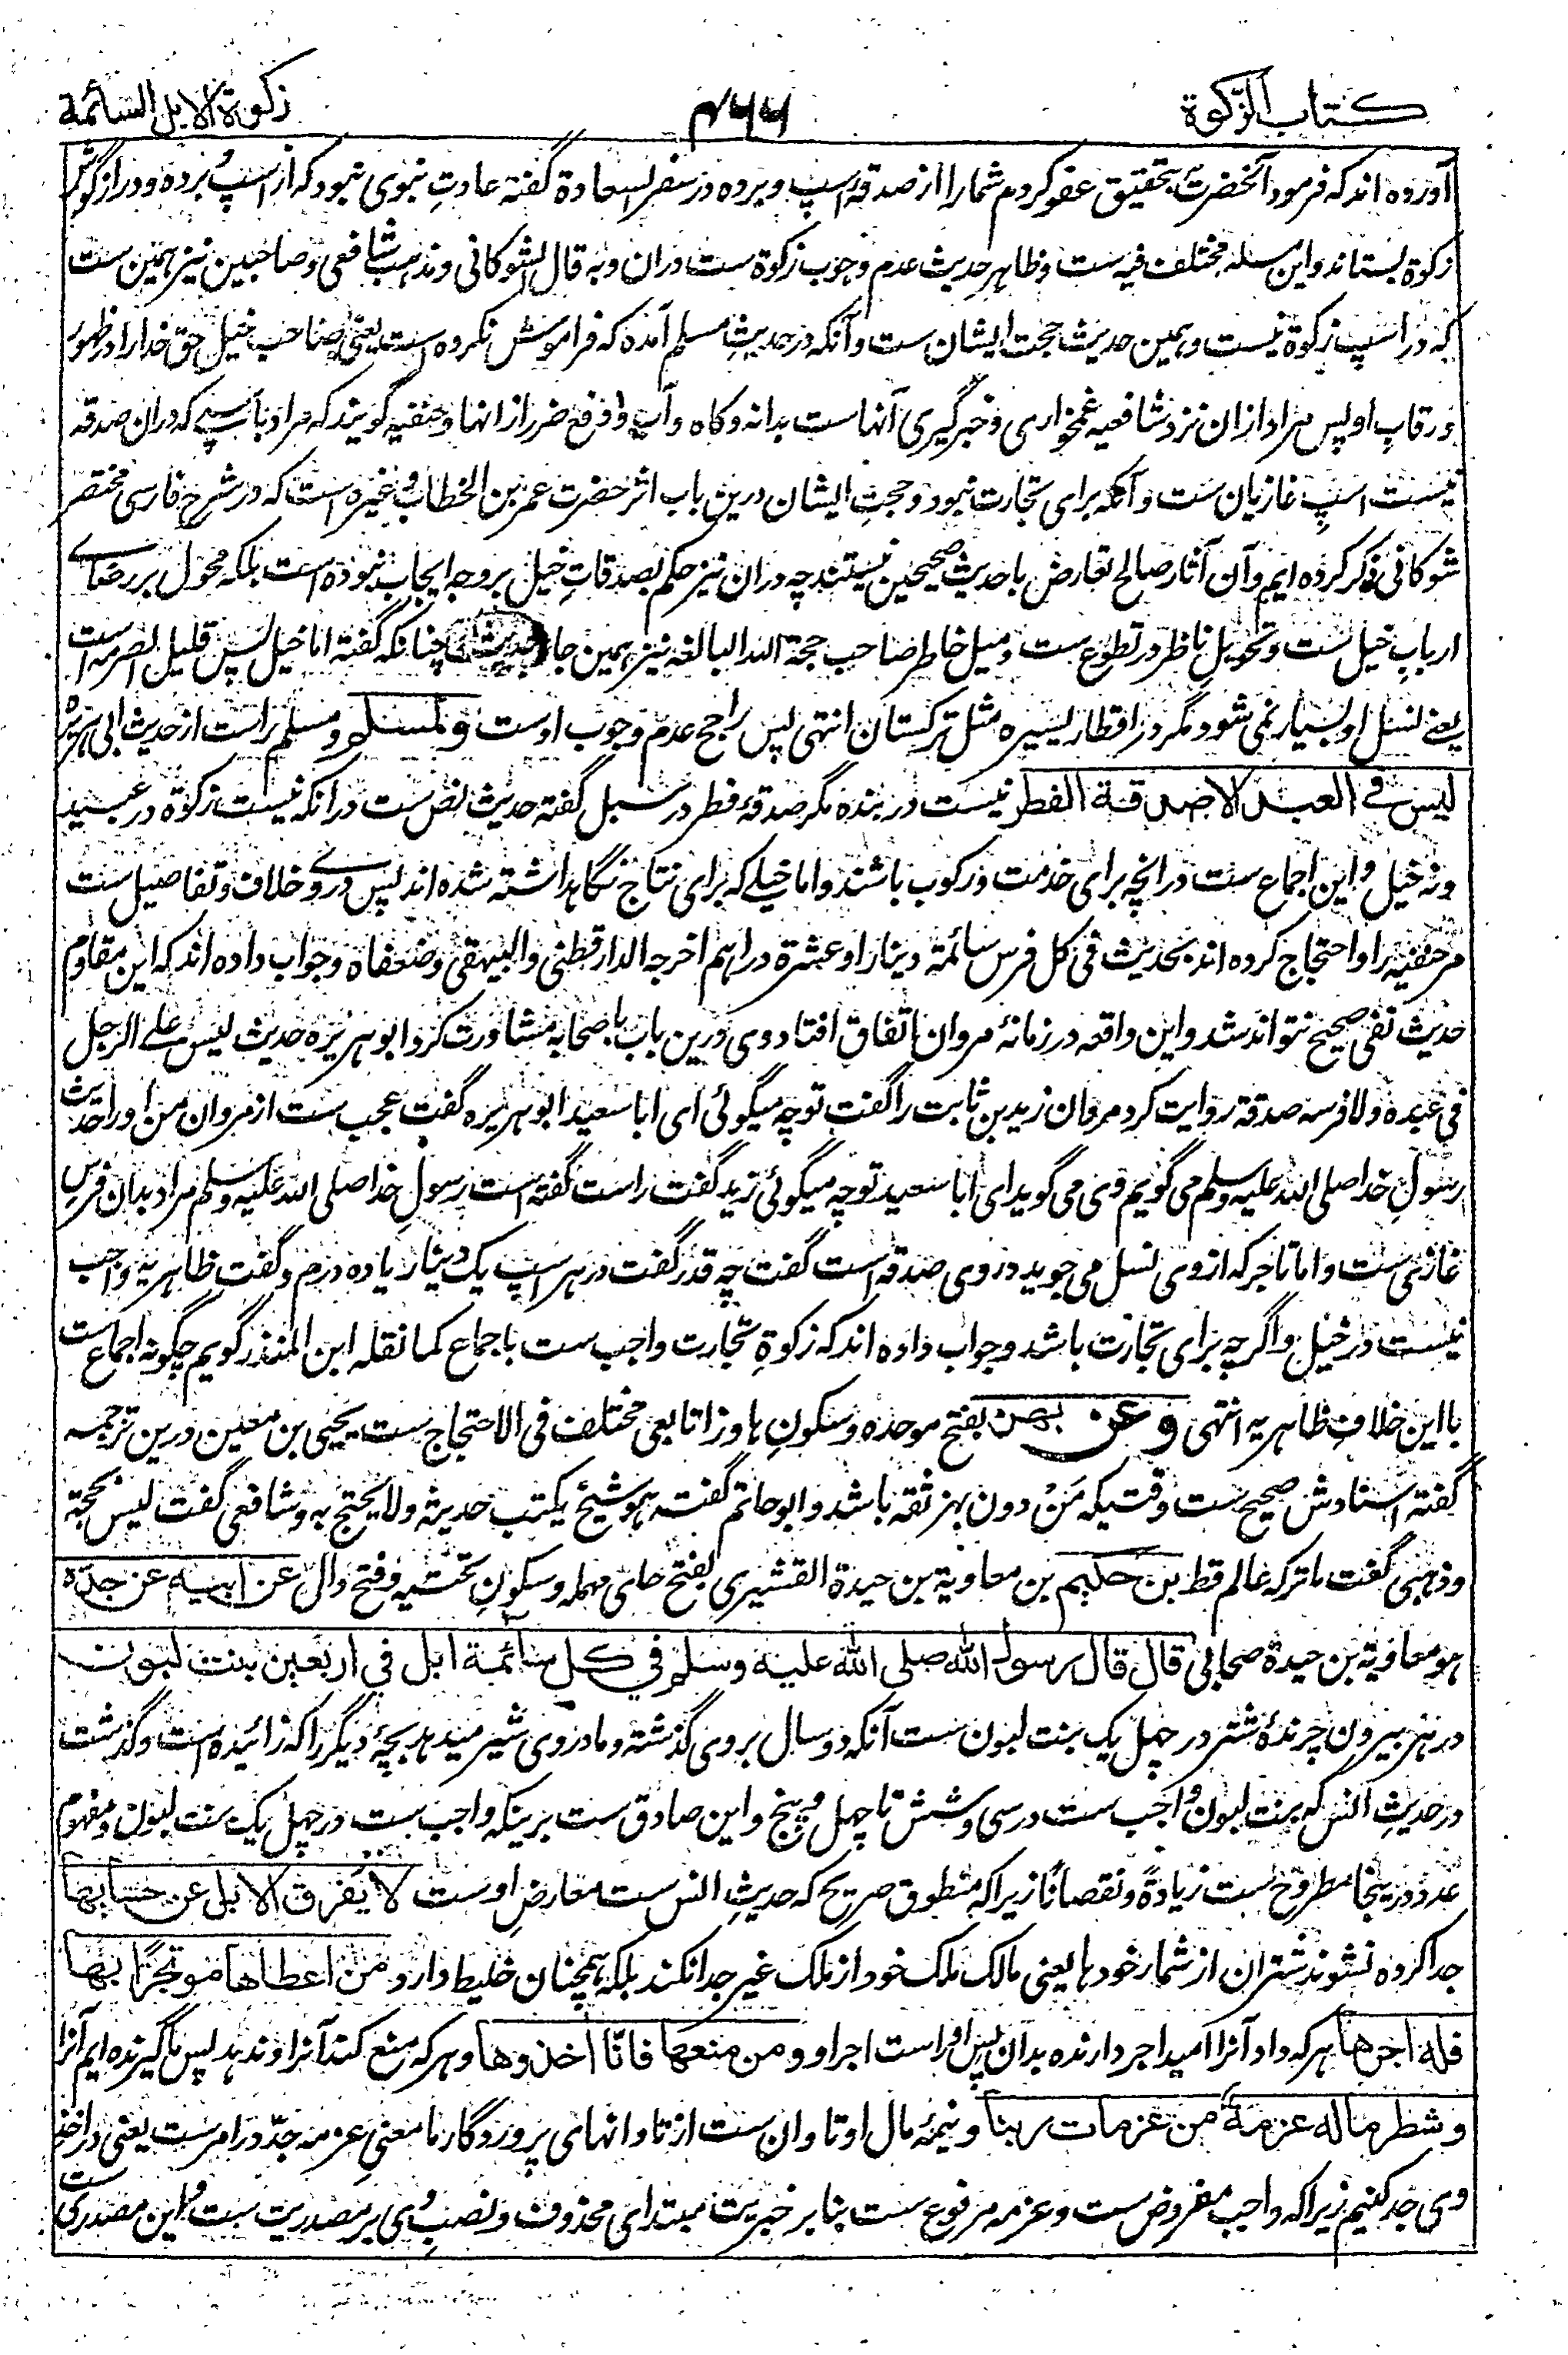 كتاب الزكوة ۴۶۶ زكوة الابل السائمة
آورده اند که فرمود آنحضرت بتحقیق عفو کردم شما را از صدقهٔ اسپ و برده در سفر السعادة گفته عادتِ نبوی نبود که از اسپ و برده و دراز گوش
زکوة بستاند و این مسئله مختلف فیه ست و ظاهرِ حدیث عدم وجوب زکوة ست دران و به قال الشوکانی و مذهب شافعی و صاحبین نیز همین ست
که در اسپ زکوة نیست و همین حدیث حجت ایشان ست و آنکه در حدیثِ مسلم آمده که فراموش نکرده است یعنی صاحب خیل حق خدا را در ظهور
و رقابِ او پس مراد ازان نزد شافعیه غمخواری و خبرگیری آنهاست بدانه و کاه و آب و دفع ضرر از انها و حنفیه گویند که مراد باسپے که دران صدقه
نیست اسپِ غازیان ست و آنکه برای تجارت نبود و حجتِ ایشان درین باب اثر حضرت عمر بن الخطاب و غیره است که در شرح فارسی مختصر
شوکانی ذکر کرده ایم و آن آثار صالح تعارض با حدیث صحیحین نیستند چه دران نیز حکم بصدقاتِ خیل بر وجه ایجاب نبوده است بلکه محول بر رضاے
اربابِ خیل ست و تحویل ناظر در تطوع ست و میل خاطر صاحب حجة الله البالغه نیز بهمین جا چنانکه گفته اما خیل پس قلیل الصرمه است
یعنے نسل او بسیار نمی شود مگر در اقطار یسیره مثل ترکستان انتهی پس راجح عدم وجوب اوست ولمسلم و مسلم راست از حدیث ابی هریره
ليس في العبد الا صدقة الفطر نیست در بنده مگر صدقهٔ فطر در سبل گفته حدیث نص ست در انکه نیست زکوة در عبید
و نه خیل و این اجماع ست در انچه برای خدمت و رکوب باشند و اما خیلے که برای نتاج نگاهداشته شده اند پس درو ے خلاف و تفاصیل ست
مر حنفیه را و احتجاج کرده اند بحدیث فی کل فرس سائمة دینار او عشرة دراهم اخرجه الدارقطنی والبیهقی وضعفاه و جواب داده اند که این مقاوم
حدیث نفی صحیح نتواند شد و این واقعه در زمانهٔ مروان اتفاق افتاد وی درین باب با صحابه مشاورت کرد ابو هریره حدیث لیس علے الرجل
فی عبده ولا فرسه صدقة روایت کرد مروان زید بن ثابت را گفت تو چه میگوئی ای ابا سعید ابو هریره گفت عجب ست از مروان من او را حدیث
رسولِ خدا صلی الله علیه وسلم می گویم وی می گوید ای ابا سعید تو چه میگوئی زید گفت راست گفته است رسولِ خدا صلی الله علیه وسلم مراد بدان فرسِ
غازی ست و اما تاجر که از وی نسل می جوید در وی صدقه است گفت چه قدر گفت در هر اسپ یک دینار یا ده درم و گفتِ ظاهریه واجب
نیست در خیل و اگرچه برای تجارت باشد و جواب داده اند که زکوةِ تجارت واجب ست باجماع کما نقله ابن المنذر گویم چگونه اجماع ست
با این خلافِ ظاهریه انتهی وعن بهز بفتح موحده و سکونِ ها و زا تابعی مختلف فی الاحتجاج ست یحیی بن معین درین ترجمه
گفته اسنادش صحیح ست وقتیکه مَنْ دون بهز ثقه باشد و ابو حاتم گفت هو شیخ یکتب حدیثه ولا یحتج به و شافعی گفت لیس بحجة
و ذهبی گفت ما ترکه عالم قط بن حكيم بن معاویة بن حیدة القشیری بفتح حای مهمله و سکونِ تحتیه و فتح دال عن ابيه عن جده
هو معاویة بن حیدة صحابی قال قال رسول الله صلى الله عليه وسلم في كل سائمة ابل في اربعين بنت لبون
در هر بیرون چرندهٔ شتر در چهل یک بنت لبون ست آنکه دو سال بر وی گذشته و مادر وی شیر میدهد بچهٔ دیگر را که زائیده است و گذشت
در حدیثِ انس که بنت لبون واجب ست در سی و شش تا چهل و پنج و این صادق ست برینکه واجب ست در چهل یک بنت لبون و مفهوم
عدد درینجا مطروح ست زیادةً و نقصانًا زیرا که منطوق صریح که حدیثِ انس ست معارضِ اوست لا يفرق الابل عن حسابها
جدا کرده نشوند شتران از شمار خود ها یعنی مالک ملک خود از ملک غیر جدا نکند بلکه همچنان خلیط دارد من اعطاها مؤتجرًا بها
فله اجرها هر که داد آنرا امید اجر دارنده بدان پس او راست اجر او ومن منعها فانا اخذوها و هر که منع کند آنرا و ندهد پس ما گیرنده ایم آنرا
وشطر ماله عزمة من عزمات ربنا و نیمهٔ مال او تاوان ست از تاوانهای پروردگار ما معنیِ عزمه جدّ در امر ست یعنی در اخذ
وی جد کنیم زیرا که واجب مفروض ست و عزمه مرفوع ست بنا بر خبریت مبتدای محذوف و نصبِ وی بر مصدریت ست و این مصدری ست